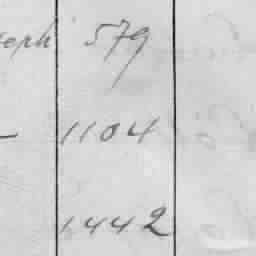 eph 579
– 1104
1442